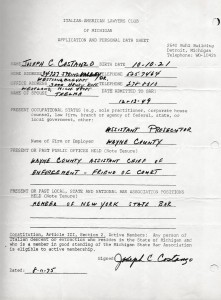 ITALIAN-AMERICAN LAWYERS CLUB
OF MICHIGAN
APPLICATION AND PERSONAL DATA SHEET
2240 Buhl Building
Detroit, Michigan
JOSEPH C COSTANZO BIRTH DATE 10-10-21
HOME ADDRESS
WESTLAND
OFFICE ADDRESS
NAME OF SPOUSE THELMA DATE ADMITTED TO BAR
12-12-49
PRESENT OCCUPATIONAL STATUS (e.g. sole practitioner, corporate house
counsel, law firm, branch or agency of federal, state, or
local government, other)
ASSISTANT PROSECUTOR
Name of Firm or Employer WAYNE COUNTY
PRESENT OR PAST PUBLIC OFFICES HELD (Note Tenure)
WAYNE COUNTY ASSISTANT CHIEF OF
ENFORCEMENT - FRIEND OF COURT
PRESENT OR PAST LOCAL, STATE AND NATIONAL BAR ASSOCIATION POSITIONS
HELD (Note Tenure)
MEMBER OF NEW YORK STATE BAR
Constitution, Article III, Section 2, Active Members: Any person of
Italian descent or extraction who resides in the State of Michigan and
who is a member in good standing of the Michigan State Bar Association
is eligible to active membership.
Signed Joseph C Costanzo
Dated: